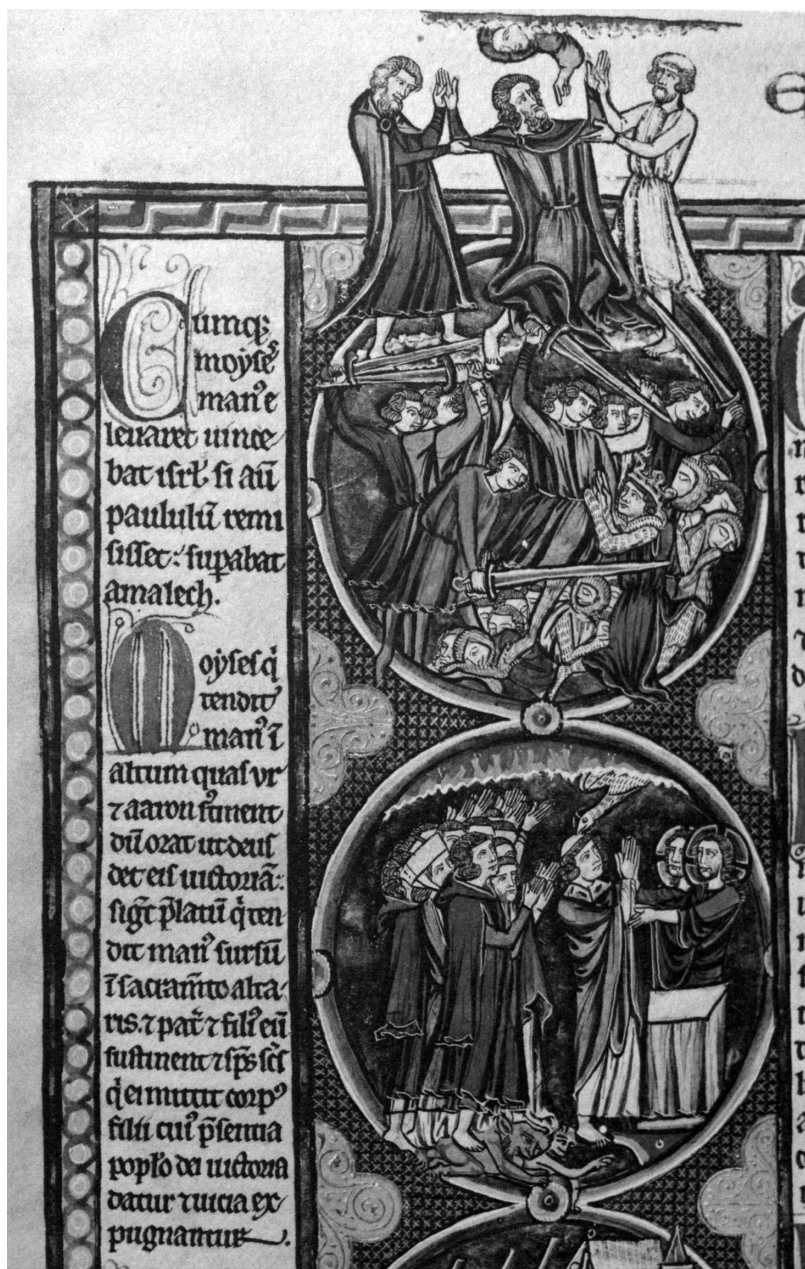 Cumq;
moyses
man⁹ e
levaret vince
bat isrl̄. si aū
paululū remi
sisset: suꝑabat
amalech.
Moyses q̇
tendit
man⁹ ī
altum quas vr
⁊ aaron sustinent
dū orat ut deus
det eis uictoriā:
sigt̄ p̄latū q̇ ten
dit man⁹ sursū
ī sacram̄to alta
ris. ⁊ pat̄ ⁊ fili⁹ eū
sustinent ⁊ sp̄s sc̄s
q̇ ei mittit corp⁹
filii cui⁹ p̄sentia
poplo dei uictoria
datur ⁊ uicia ex
pugnantur.